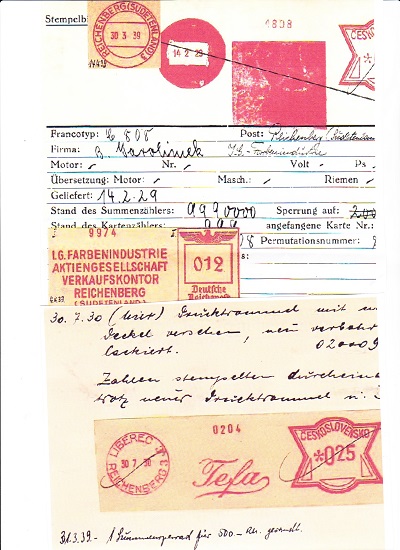 Stempelbi
REICHENBERG (SUDETENLAND) 3
30 3 39
14 2 29
1808
ČESK
Francotyp: C 800 Post: Reichenberg (Sudetenland
Firma: I.G. Farbenindustrie
Motor: Nr. Volt Ps
Übersetzung: Motor: Masch.: Riemen
Geliefert: 14.2.29
Stand des Summenzählers: 9990000 Sperrung auf:
Stand des Kartenzählers: 999 angefangene Karte Nr.:
Permutationsnummer:
9974
I.G. FARBENINDUSTRIE
AKTIENGESELLSCHAFT
VERKAUFSKONTOR
REICHENBERG
(SUDETENLAND)
012
Deutsche
Reichspost
30.7.30 (hier) Drucktrommel mit
Deckel versehen, neu
lackiert. 020009
Zahlen stempelten durcheinan
trotz neuer Drucktrommel
LIBEREC 3
30 7 30
REICHENBERG 3
0204
Tefa
ČESKOSLOVENSKO
*025
31.3.39.- 1 Summensperrad für 500.-